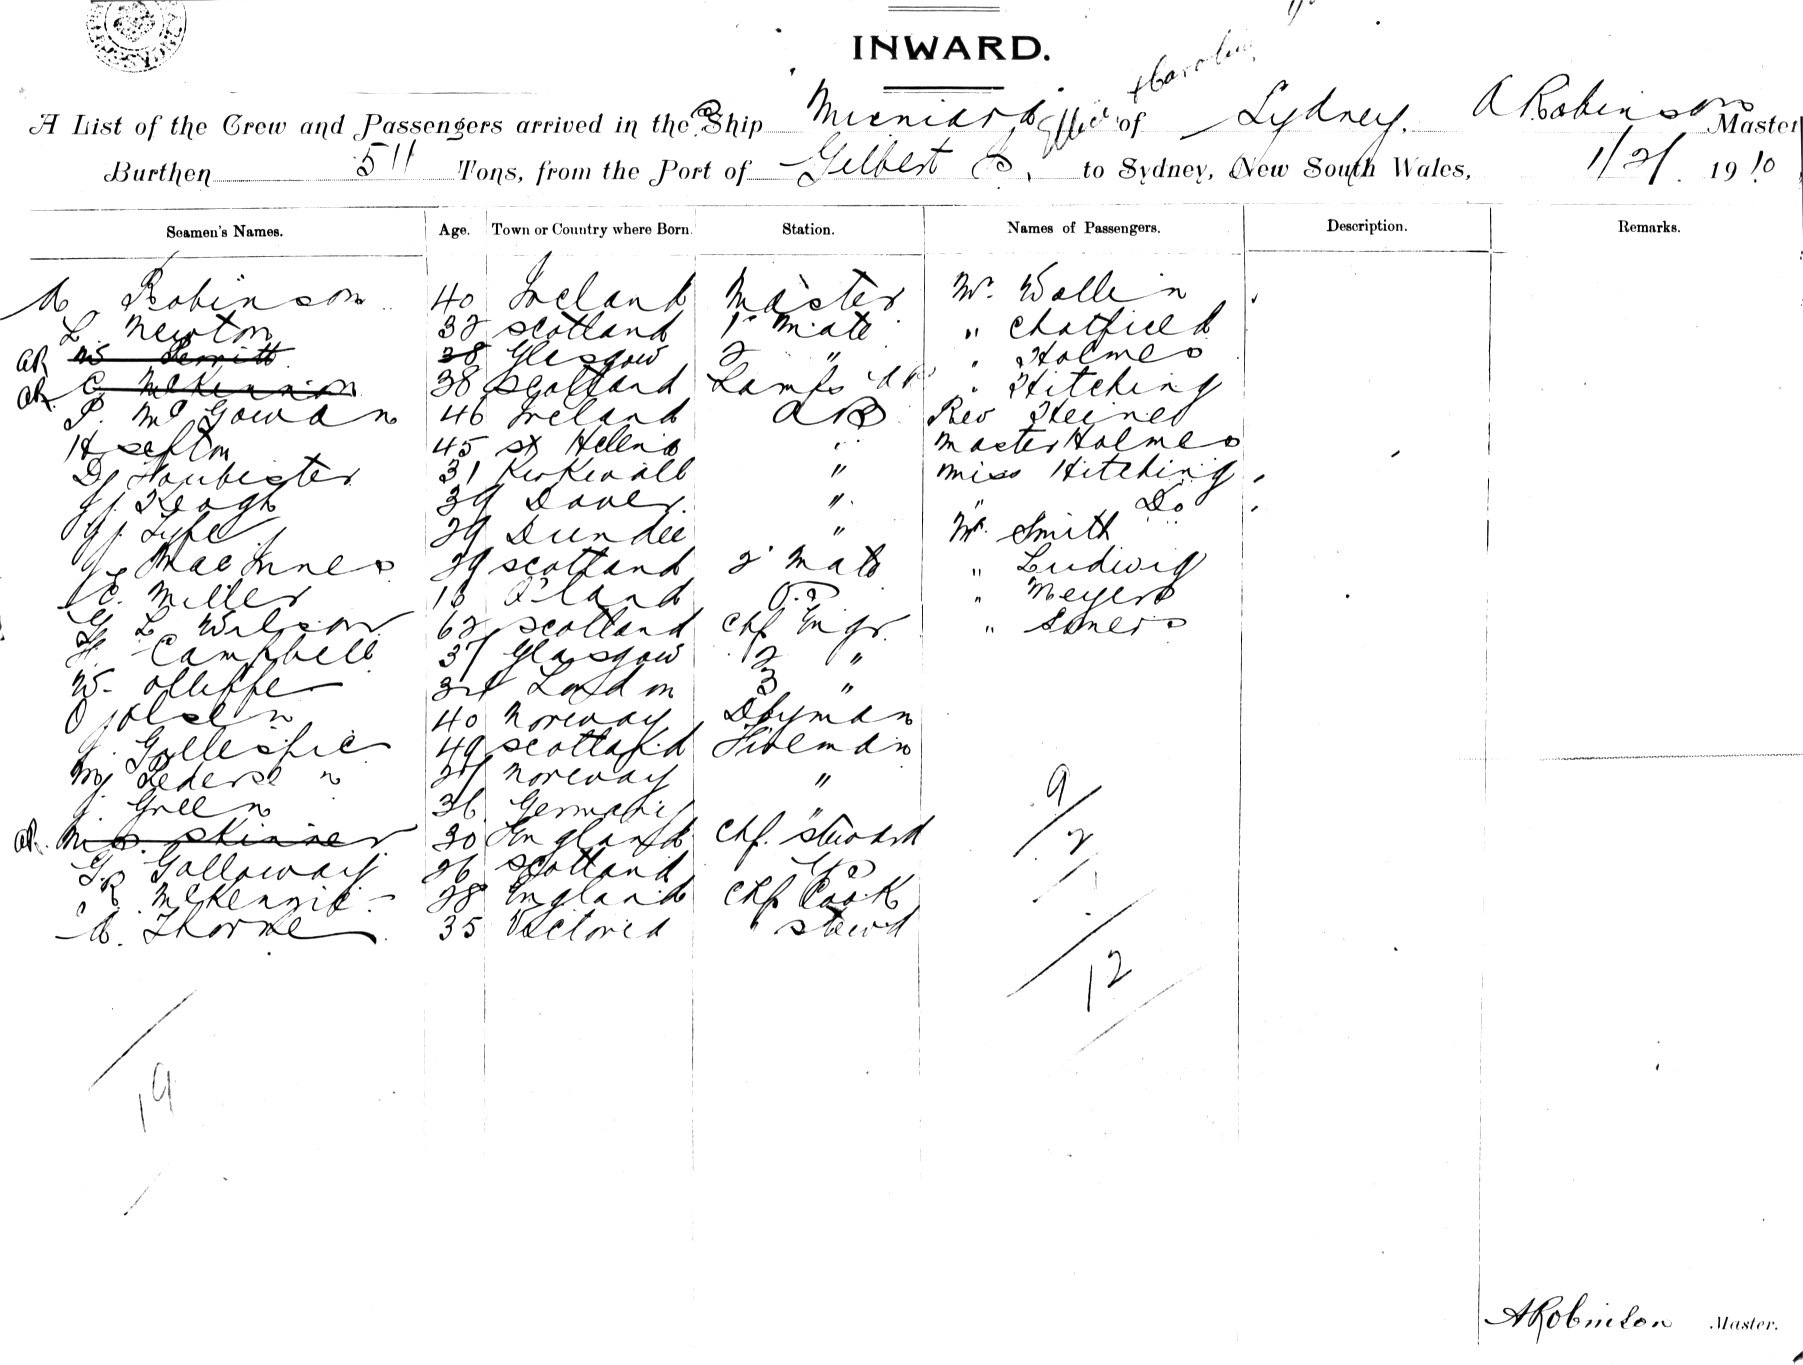 INWARD.
A List of the Crew and Passengers arrived in the Ship of Sydney. A Robinson Master
Burthen 511 Tons, from the Port of Gilbert to Sydney, New South Wales, 1/2/ 1910
Seamen's Names. Age. Town or Country where Born. Station. Names of Passengers. Description. Remarks.
A Robinson 40 Ireland Master Mr. Wallin
L Newton 32 Scotland 1st Mate " Chatfield
AR W Merritt 38 Glasgow 2 " " Holmes
AR C McKinnon 38 Scotland Lamps AB " Hitching
P. McGowan 46 Ireland AB Rev Heines
H Sefton 45 St Helena " Master Holmes
31 Kirkwall " Miss Hitching
J. Keogh 39 Dover " " Do
29 Dundee " Mr. Smith
MacInnes 29 Scotland 2d Mate " Ludwig
C. Miller 18 " Meyers
G L Wilson 62 Scotland Chf Engr. "
Campbell 37 Glasgow 2 "
W. Olliffe 34 London 3 "
O Jolsen 40 Norway Dkyman
J. Gillespie 49 Scotland Fireman
Pedersen 27 Norway "
J. Green 36 Germany "
AR Skinner 30 England Chf. Steward
Galloway 26 Scotland
R McKenzie 28 England Chf Cook
A. Thorne 35 Victoria " Stewd
9
2
1
12
19
A Robinson Master.